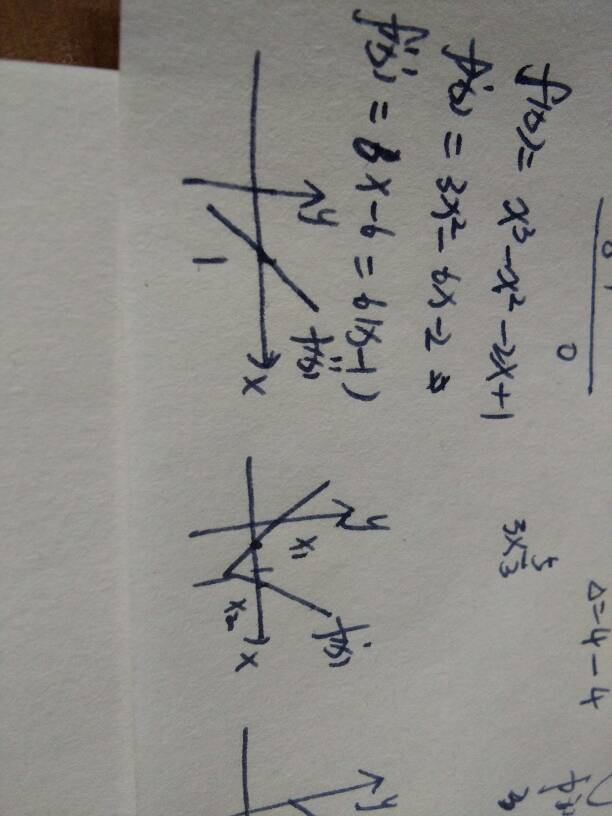 f(x) = x³ - x² - 2x + 1
f'(x) = 3x² - 6x - 2
f''(x) = 6x - 6 = 6(x-1)
y
1
f''(x)
x
y
x₁
x₂
f'(x)
x
Δ=4-4
y
0